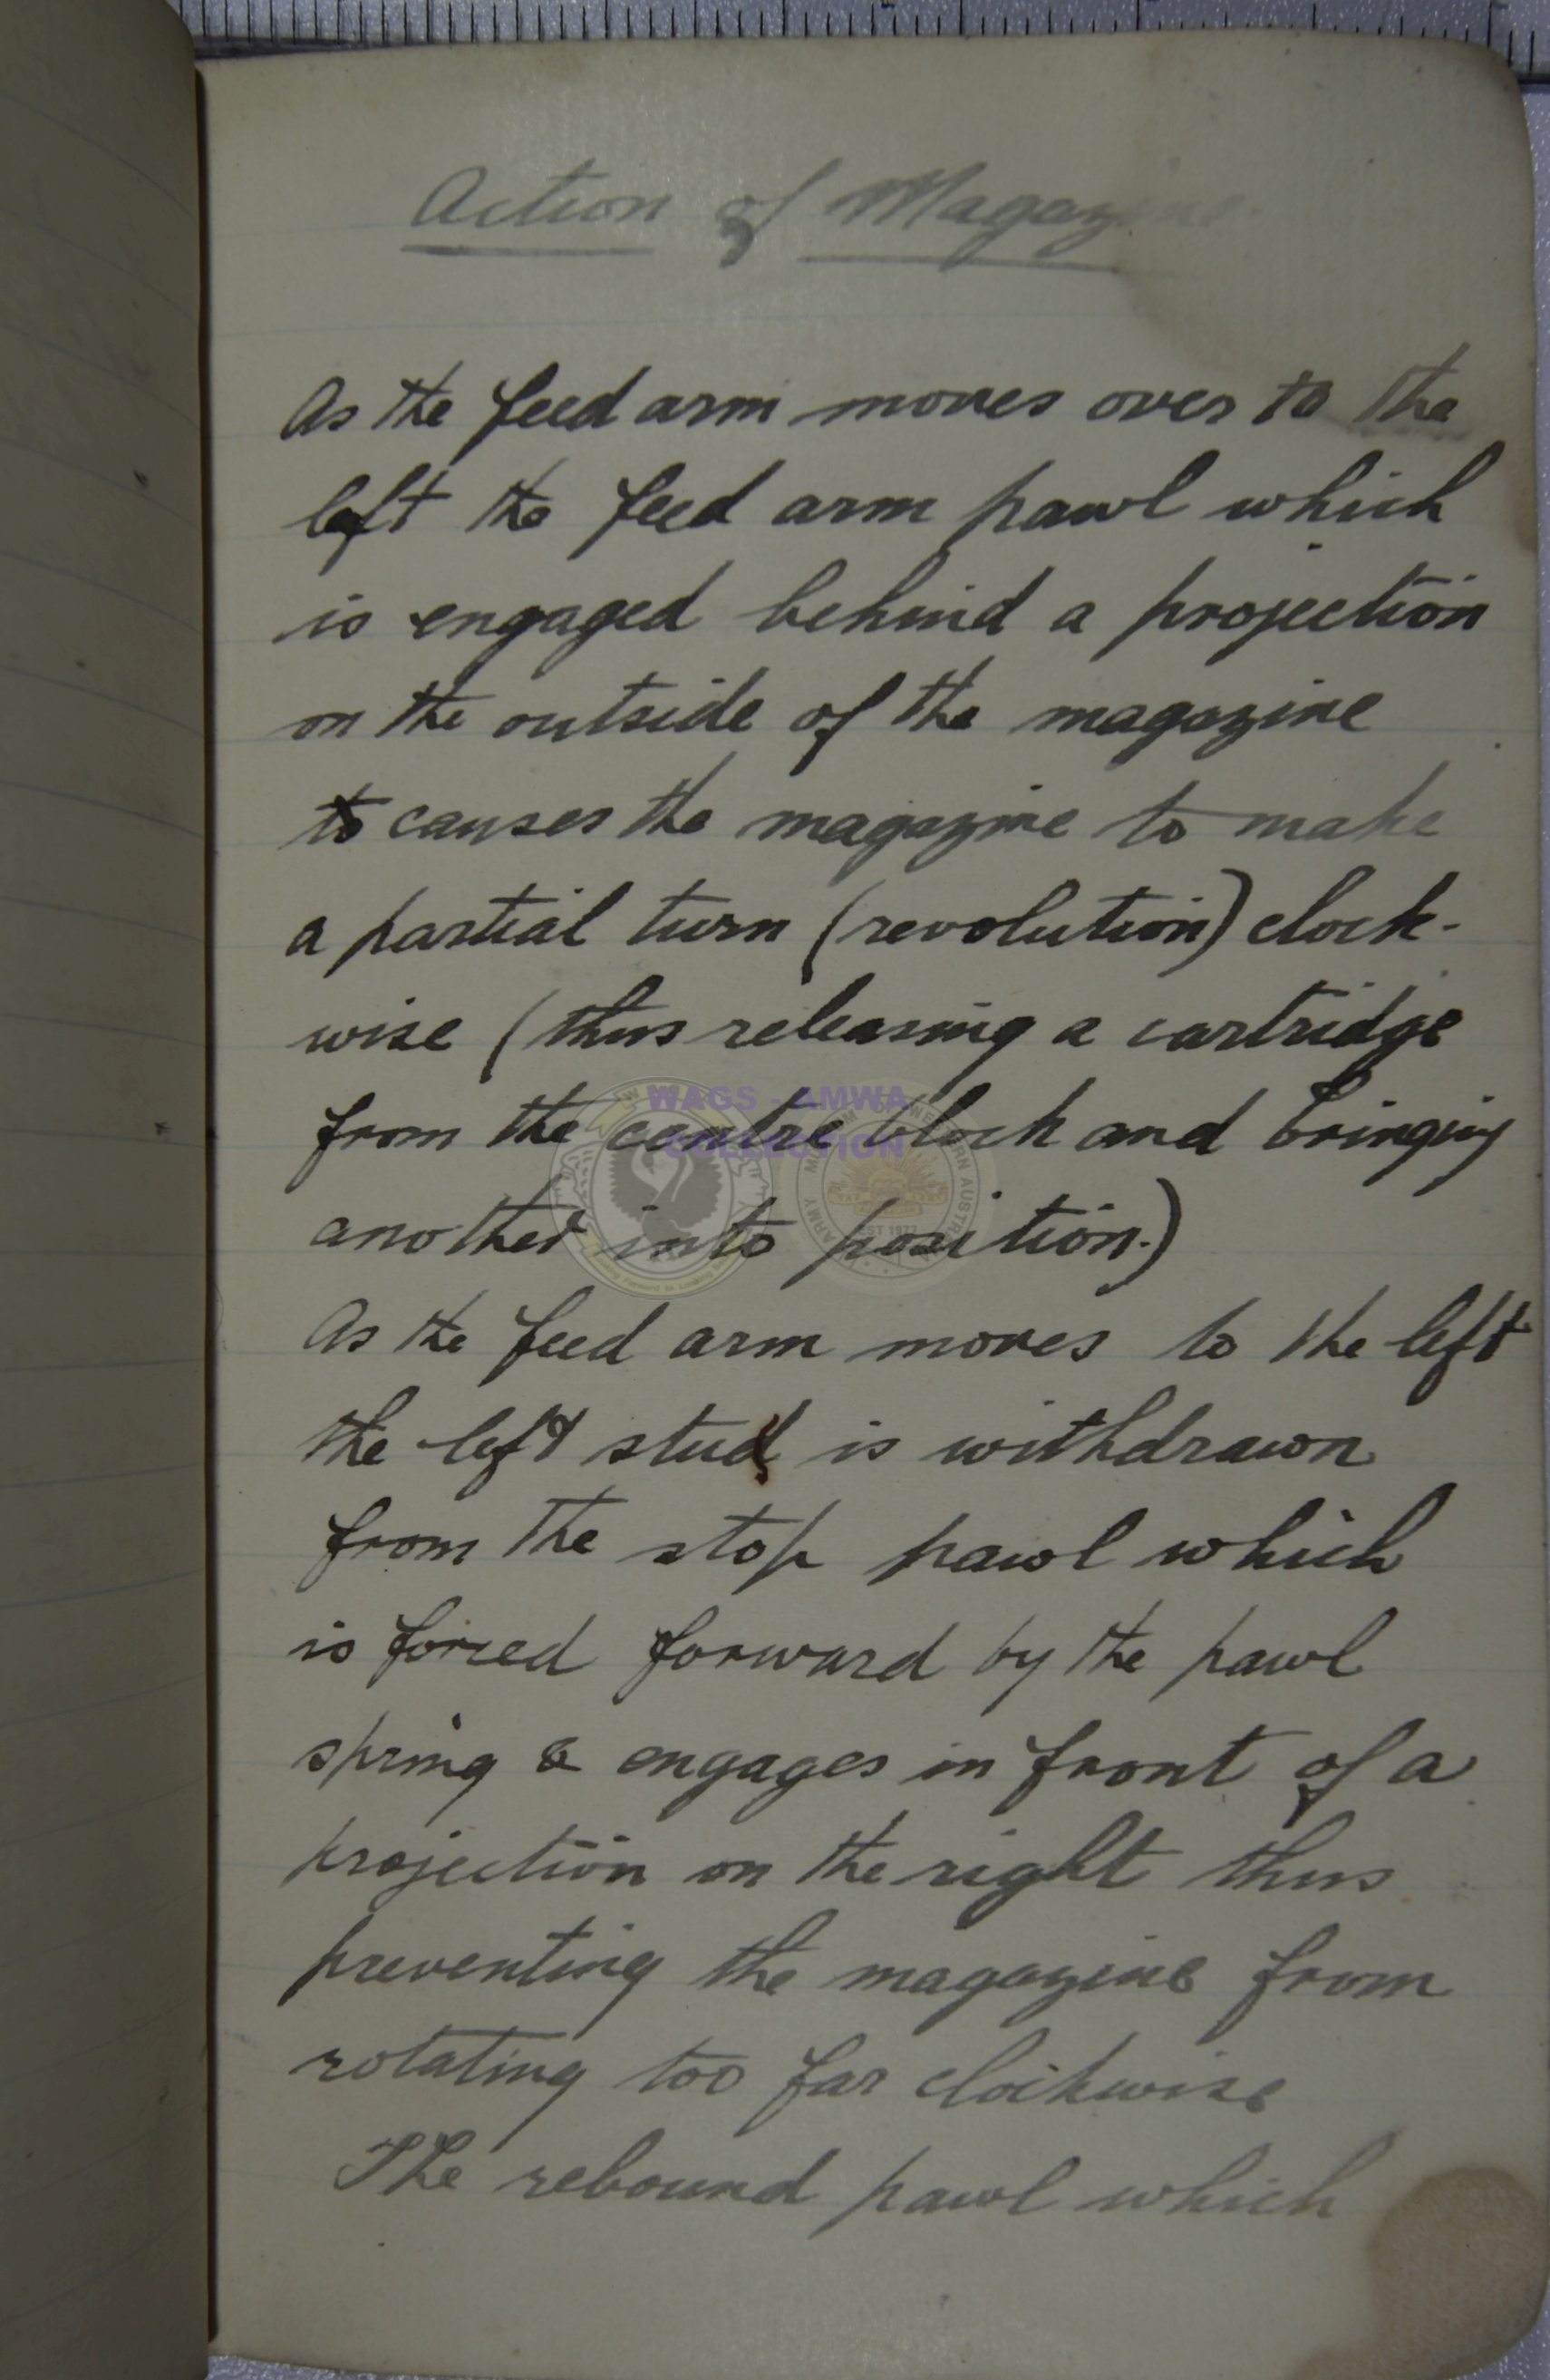 Action of Magazine
As the feed arm moves over to the
left the feed arm pawl which
is engaged behind a projection
on the outside of the magazine
to causes the magazine to make
a partial turn (revolution) clock-
wise (thus releasing a cartridge
from the centre block and bringing
another into position.)
As the feed arm moves to the left
the left stud is withdrawn
from the stop pawl which
is forced forward by the pawl
spring & engages in front of a
projection on the right thus
preventing the magazine from
rotating too far clockwise
The rebound pawl which
WAGS - AMWA
COLLECTION